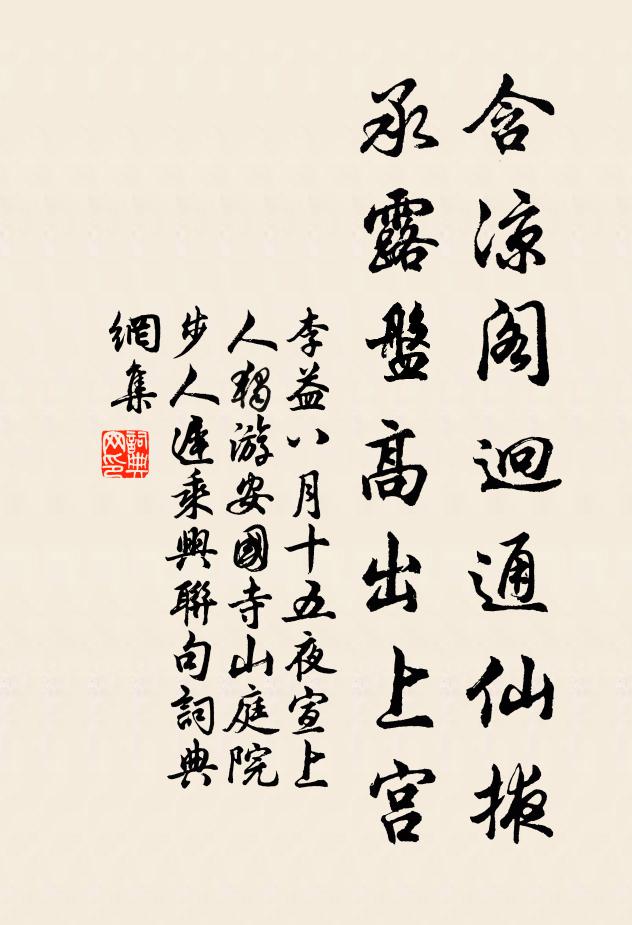 含涼閣迥通仙掖
承露盤高出上宮
李益八月十五夜宣上
人獨游安國寺山庭院
步人遲乘興聯句詞典
網集
詞典
网印